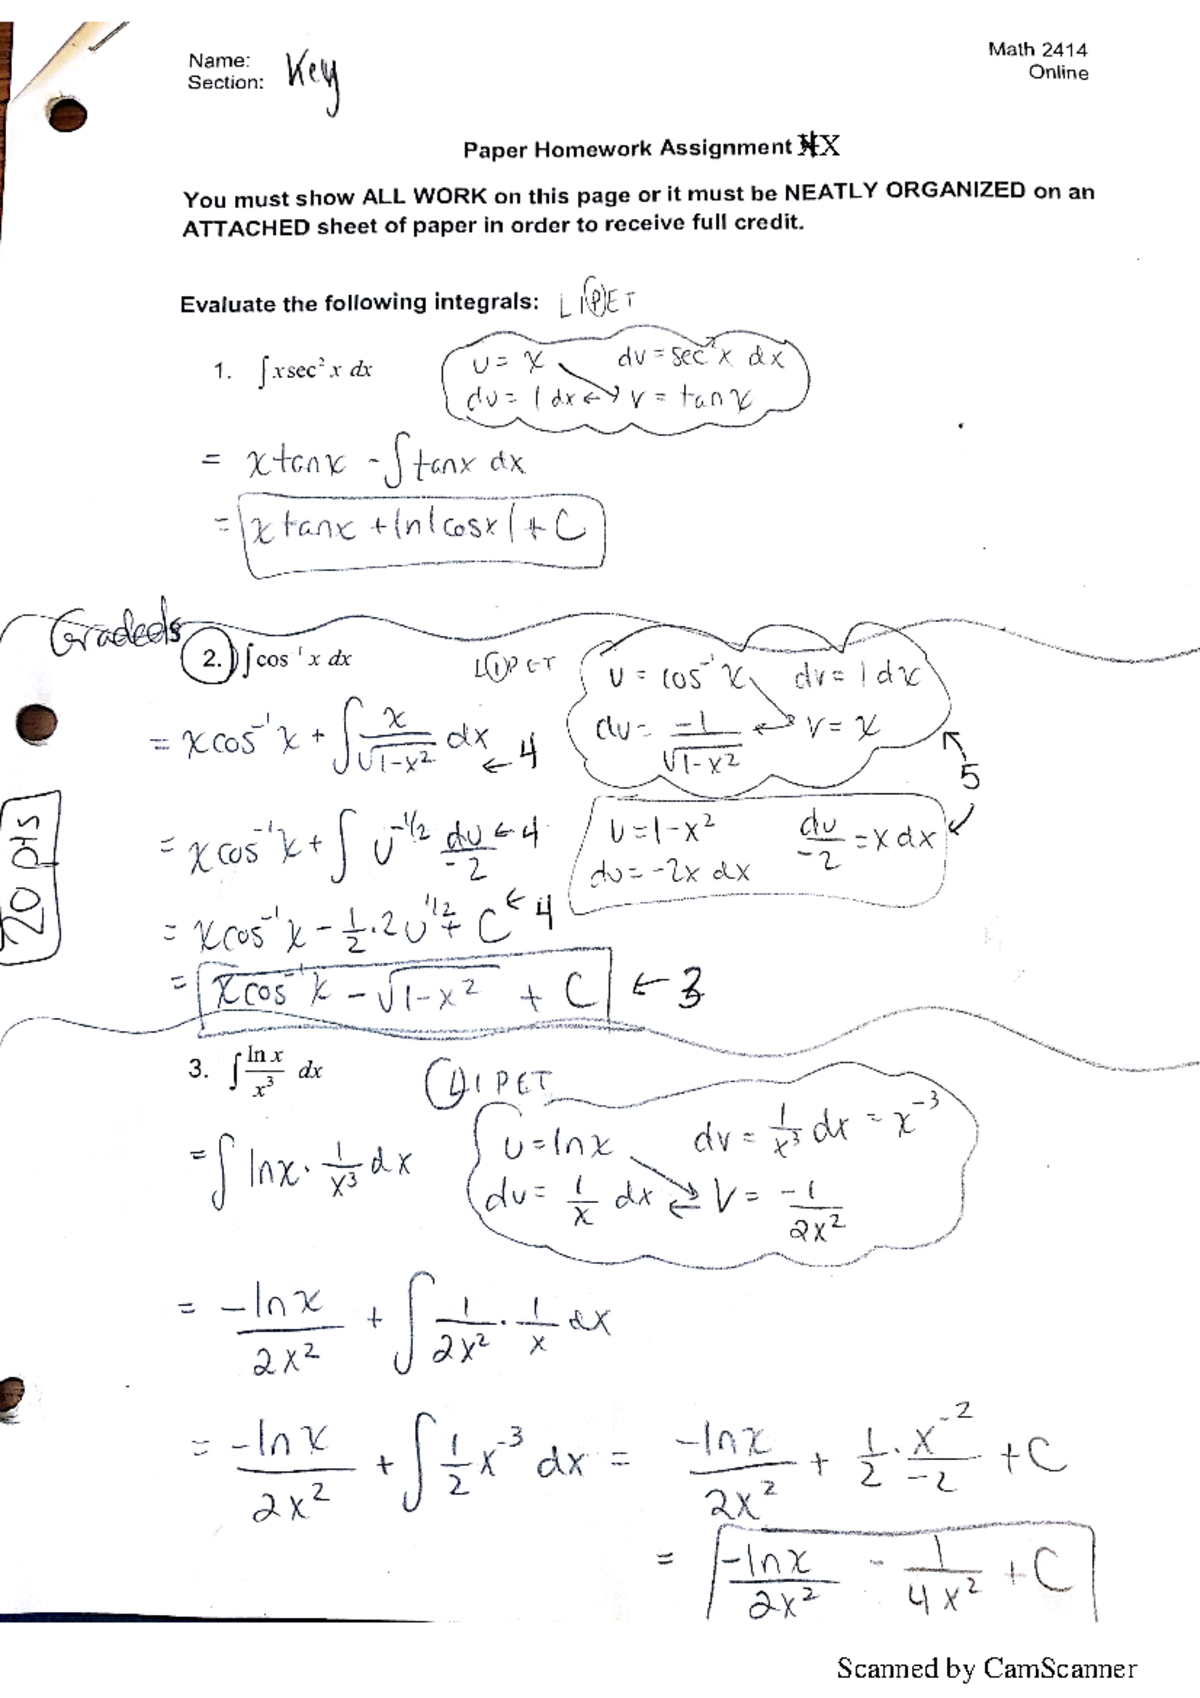 Name:
Section: Key
Math 2414
Online
Paper Homework Assignment X
You must show ALL WORK on this page or it must be NEATLY ORGANIZED on an
ATTACHED sheet of paper in order to receive full credit.
Evaluate the following integrals: LIPET
1. ∫ x sec² x dx
u = x dv = sec² x dx
du = 1 dx v = tan x
= x tan x - ∫ tan x dx
= x tan x + ln|cos x| + C
Graded
2. ∫ cos⁻¹ x dx LIPET
u = cos⁻¹ x dv = 1 dx
du = -1/√(1-x²) v = x
= x cos⁻¹ x + ∫ x/√(1-x²) dx ← 4
5
20 pts
u = 1-x² du/-2 = x dx
du = -2x dx
= x cos⁻¹ x + ∫ u^(-1/2) du/-2 ← 4
= x cos⁻¹ x - 1/2 · 2u^(1/2) + C ← 4
= x cos⁻¹ x - √(1-x²) + C ← 3
3. ∫ ln x/x³ dx LIPET
u = ln x dv = 1/x³ dx = x⁻³
du = 1/x dx v = -1/2x²
= ∫ ln x · 1/x³ dx
= -ln x/2x² + ∫ 1/2x² · 1/x dx
= -ln x/2x² + ∫ 1/2 x⁻³ dx = -ln x/2x² + 1/2 · x⁻²/-2 + C
= -ln x/2x² - 1/4x² + C
Scanned by CamScanner